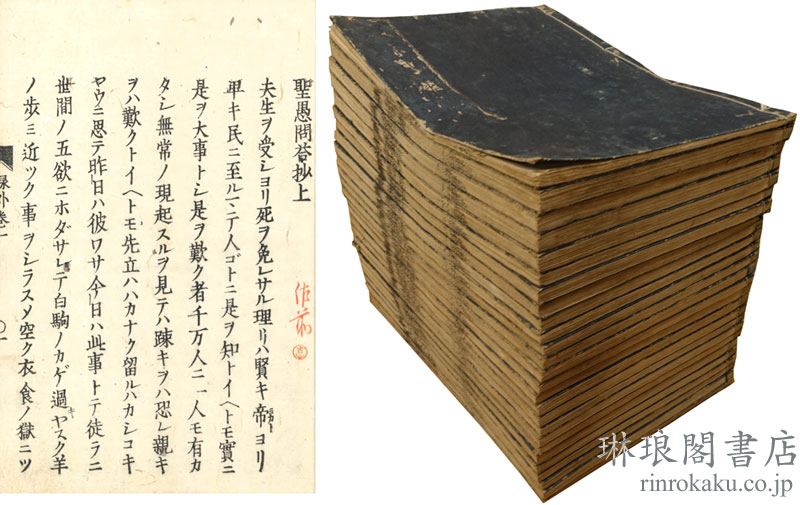 聖愚問答抄上
夫生ヲ受シヨリ死ヲ免レサル理リハ賢キ帝ヨリ
卑キ民ニ至ルマテ人ゴトニ是ヲ知トイヘトモ實ニ
是ヲ大事トシ是ヲ歎ク者千万人ニ一人モ有カ
タシ無常ノ現起スルヲ見テハ疎キヲハ恐レ親キ
ヲハ歎クトイヘトモ先立ハハカナク留ルハカシコキ
ヤウニ思テ昨日ハ彼ワサ今日ハ此事トテ徒ラニ
世間ノ五欲ニホダサレテ白駒ノカゲ過ヤスク羊
ノ歩ミ近ツク事ヲシラスメ空ク衣食ノ獄ニツ
録外巻一
〇一
琳琅閣書店
rinrokaku.co.jp